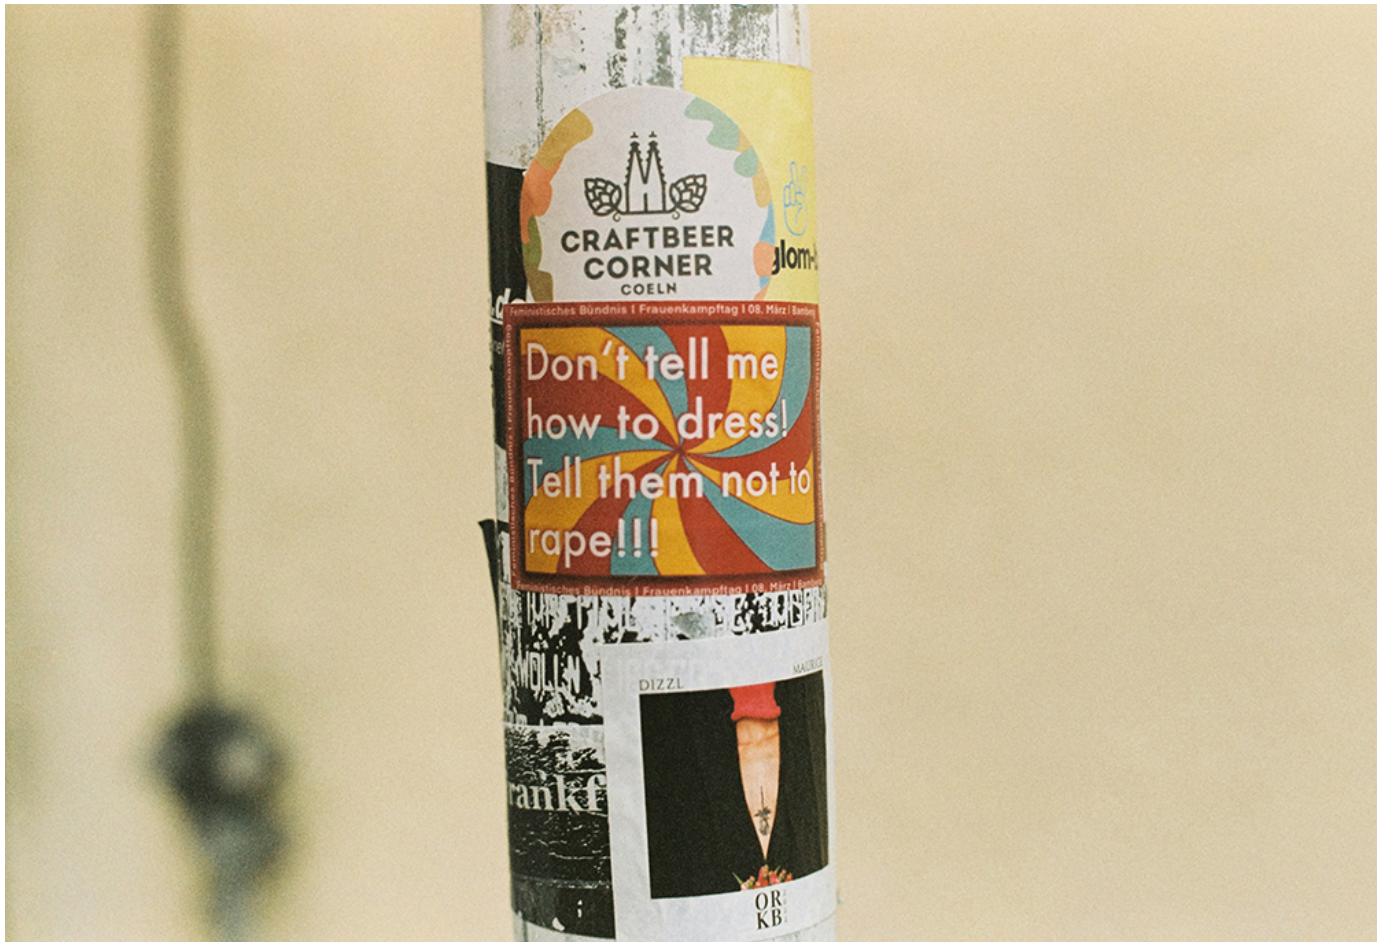 CRAFTBEER
CORNER
COELN
glom-
Feministisches Bündnis I Frauenkampftag I 08. März I Bamberg
Don't tell me
how to dress!
Tell them not to
rape!!!
Feministisches Bündnis I Frauenkampftag I 08. März I Bamberg
DIZZL
OR
KB